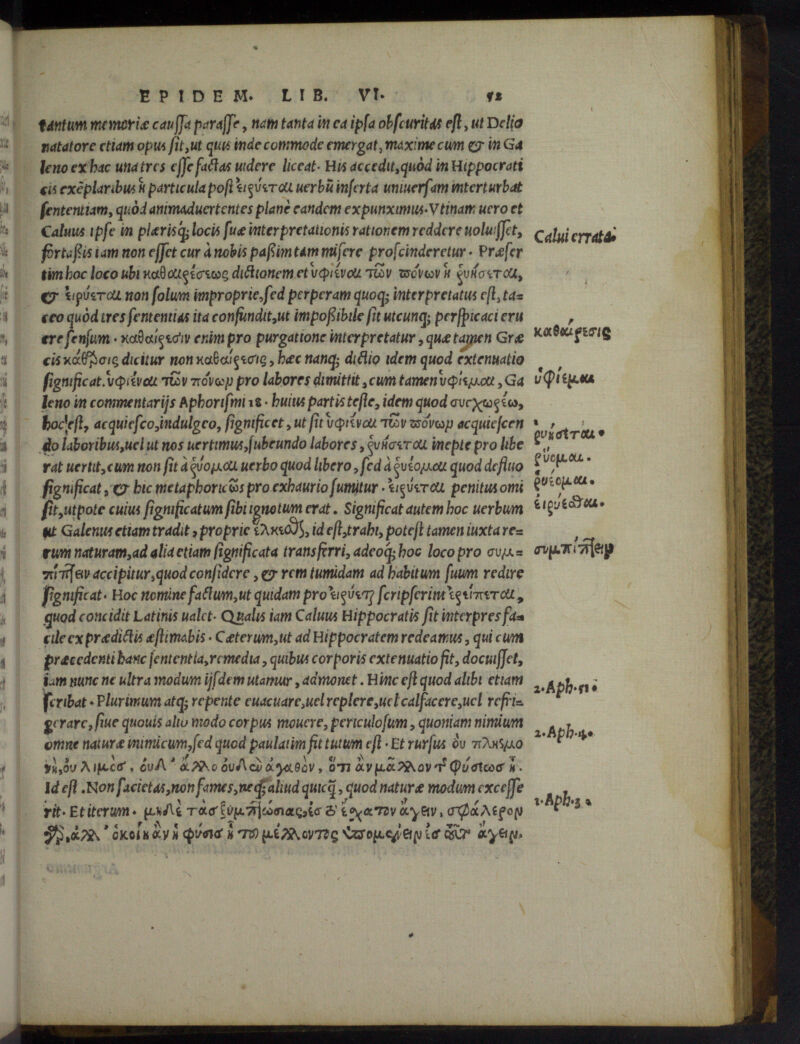 EPIDEM. LIB. VI.
tantum memoriæ caussa parasse, nam tanta in ea ipsa obscuritas est, ut Delio
natatore etiam opus sit, ut quis inde commode emergat, maxime cum & in Ga
leno ex hac una tres esse factas uidere liceat. His accedit, quòd in Hippocrati
cis exēplaribus ἢ particula post εἰρύεται uerbū inserta uniuersam interturbat
sententiam, quòd animaduertentes planè eandem expunximus. Vtinam uero et
Caluus ipse in plærisq; locis suæ interpretationis rationem reddere uoluisset,
fortassis iam non esset cur à nobis passim tam misere proscinderetur. Præser
tim hoc loco ubi καθαιρέσιως dictionem et ὑφιέναι τῶν πόνων ἢ ῥυήσεται,
& εἰρύεται non solum improprie, sed perperam quoq; interpretatus est, ta=
ceo quòd tres sententias ita confundit, ut impossibile sit utcunq; perspicaci eru
ere sensum. καθαίρεσιν enim pro purgatione interpretatur, quæ tamen Græ
cis κάθαρσις dicitur non καθαίρεσις, hæc nanq; dictio idem quod extenuatio
significat. ὑφιέναι τῶν πόνων pro labores dimittit, cum tamen ὑφίεμαι, Ga
leno in commentarijs Aphorismi 18. huius partis teste, idem quod συγχωρέω,
hoc est, acquiesco, indulgeo, significet, ut sit ὑφιέναι τῶν πόνων acquiescen
do laboribus, uel ut nos uertimus, subeundo labores, ῥυήσεται inepte pro libe
rat uertit, cum non sit à ῥύομαι uerbo quod libero, sed à ῥυέομαι quod defluo
significat, & hic metaphoricῶs pro exhaurio sumitur. εἰρύεται penitus omi
sit, utpote cuius significatum sibi ignotum erat. Significat autem hoc uerbum
ut Galenus etiam tradit, proprie ἑλκεῖσθαι, id est, trahi, potest tamen iuxta re=
rum naturam, ad alia etiam significata transferri, adeoq; hoc loco pro συμ=
πίπτειν accipitur, quod considere, & rem tumidam ad habitum suum redire
significat. Hoc nomine factum, ut quidam pro εἰρύεται scripserint ἐρείπεται,
quod concidit Latinis ualet. Qualis iam Caluus Hippocratis sit interpres fa=
cile ex prædictis æstimabis. Cæterum, ut ad Hippocratem redeamus, qui cum
præcedenti hanc sententia, remedia, quibus corporis extenuatio fit, docuisset,
iam nunc ne ultra modum ijsdem utamur, admonet. Hinc est quod alibi etiam
scribat. Plurimum atq; repente euacuare, uel replere, uel calfacere, uel refri=
gerare, siue quouis alio modo corpus mouere, periculosum, quoniam nimium
omne naturæ inimicum, sed quod paulatim fit tutum est. Et rursus οὐ πλησμο
νὴ, οὐ λιμὸς, οὐδ' ἄλλο οὐδὲν ἀγαθὸν, ὅτι ἂν μᾶλλον τ φύσεως ᾖ.
Id est. Non sacietas, non fames, neq; aliud quicq̃, quod naturæ modum excesse
rit. Et iterum. μηδὲ τὰς ξυμπτώσιας, ἐς τὸ ἔσχατον ἄγειν, σφαλερὸν
γὰρ, ἀλλ' ὁκοίη ἂν ἡ φύσις ᾖ τοῦ μέλλοντος ὑπομένειν ἐς τοῦτο ἄγειν.
Calui errata.
καθαίρεσις
ὑφίεμαι
ῥυήσεται.
ῥύομαι.
ῥυέομαι.
εἰρύεσθαι.
συμπίπτειν
2. Aph. 51.
2. Aph. 4.
1. Aph. 3.